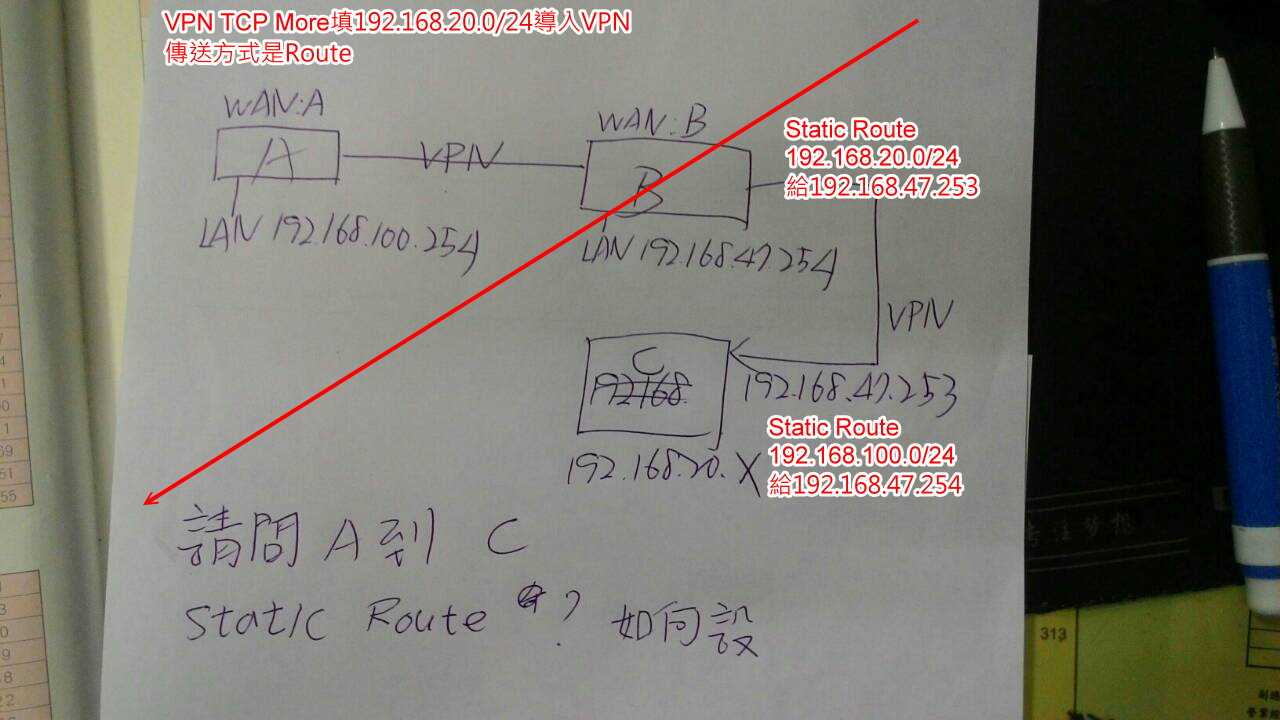 VPN TCP More填192.168.20.0/24導入VPN
傳送方式是Route
WAN:A
A
VPN
LAN 192.168.100.254
WAN:B
B
LAN 192.168.47.254
Static Route
192.168.20.0/24
給192.168.47.253
VPN
C
192168.
192.168.47.253
192.168.20.X
Static Route
192.168.100.0/24
給192.168.47.254
請問 A 到 C
Static Route ? 如何設
313
69
51
55